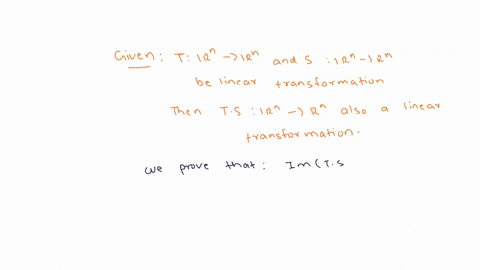 Given: T: IRⁿ -> IRⁿ and S : IRⁿ -> IRⁿ
be linear transformation
Then T.S : IRⁿ -> Rⁿ also a linear
transformation.
we prove that: Im(T.S